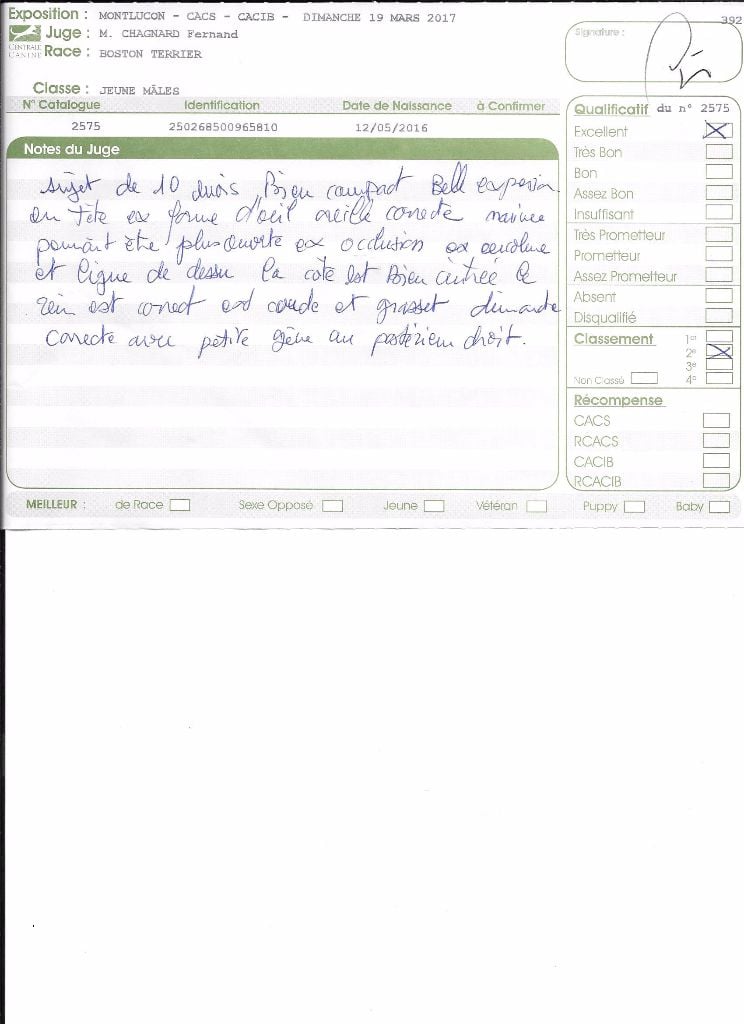 Exposition : MONTLUCON - CACS - CACIB - DIMANCHE 19 MARS 2017
392
CENTRALE CANINE
Juge : M. CHAGNARD Fernand
Signature :
Race : BOSTON TERRIER
Classe : JEUNE MÂLES
N° Catalogue Identification Date de Naissance à Confirmer
2575 250268500965810 12/05/2016
Notes du Juge
sujet de 10 mois Bien compact Bell expression
en Tête ex forme d'oeil oreille correcte narinee
pourrait être plus ouverte ex occlusion ex encolure
et ligne de dessu la cote est Bien cintrée le
rein est correct ex coude et grasset démarche
correcte avec petite gène au postérieur droit.
Qualificatif du n° 2575
Excellent
Très Bon
Bon
Assez Bon
Insuffisant
Très Prometteur
Prometteur
Assez Prometteur
Absent
Disqualifié
Classement 1er
2e
3e
Non Classé 4e
Récompense
CACS
RCACS
CACIB
RCACIB
MEILLEUR : de Race Sexe Opposé Jeune Vétéran Puppy Baby